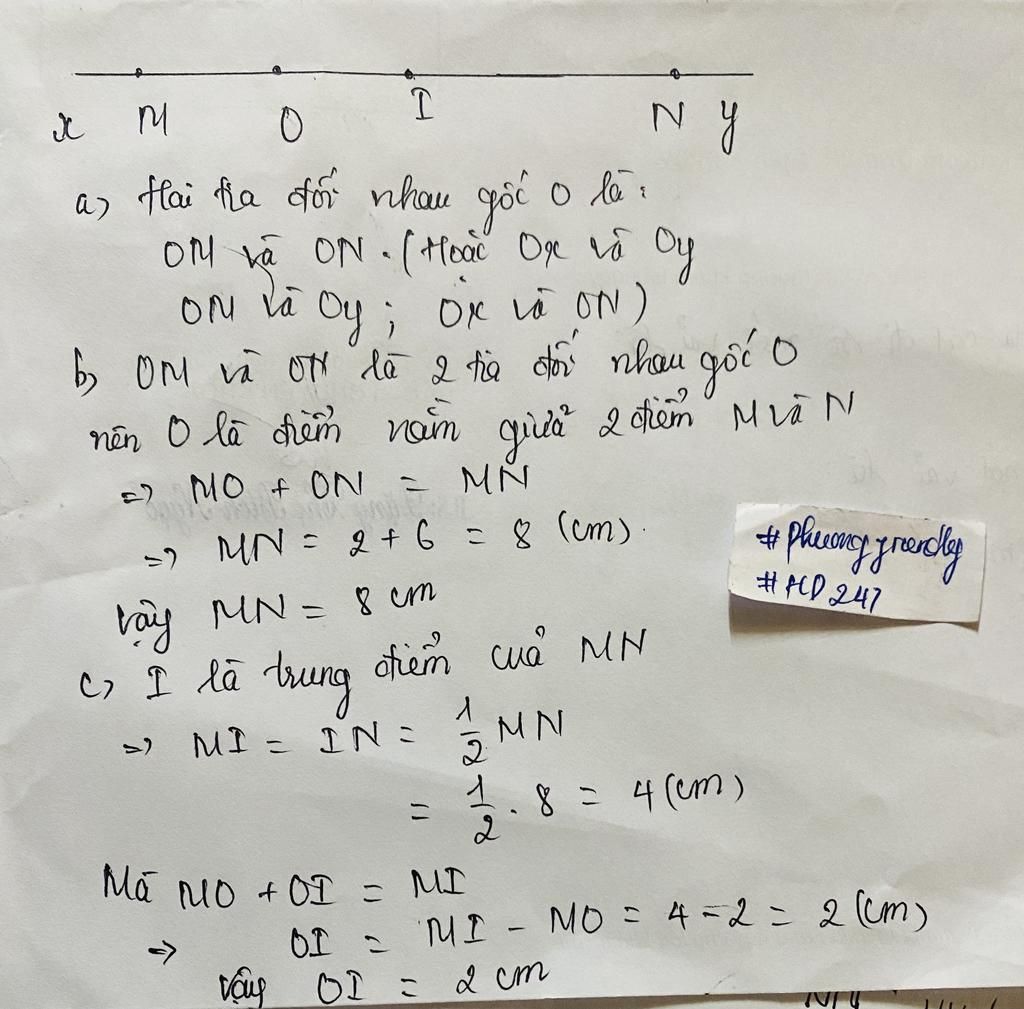 x M O I N y
a) Hai tia đối nhau gốc O là:
OM và ON. (Hoặc Ox và Oy
OM và Oy; Ox và ON)
b) OM và ON là 2 tia đối nhau gốc O
nên O là điểm nằm giữa 2 điểm M và N
=> MO + ON = MN
=> MN = 2 + 6 = 8 (cm).
#Phuongfriendly
#HD247
Vậy MN = 8 cm
c) I là trung điểm của MN
=> MI = IN = 1/2 MN
= 1/2 . 8 = 4 (cm)
Mà MO + OI = MI
=> OI = MI - MO = 4 - 2 = 2 (cm)
Vậy OI = 2 cm